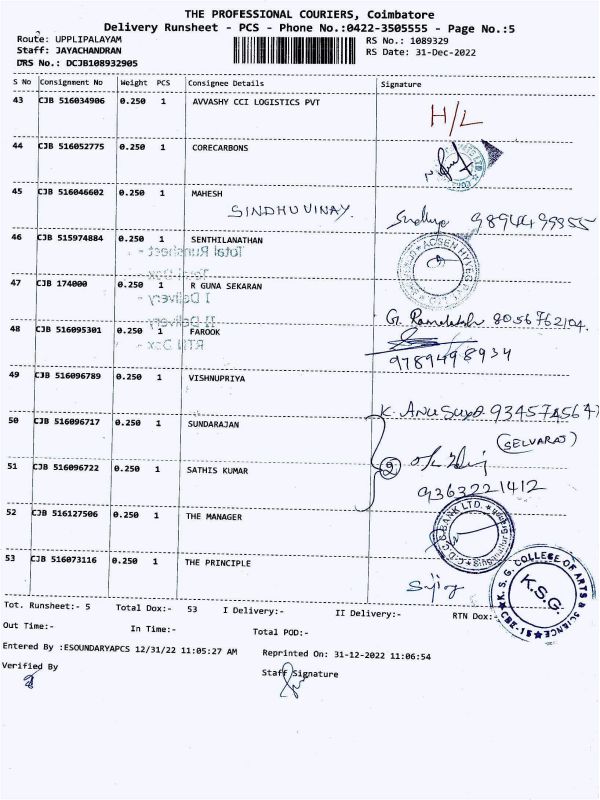 THE PROFESSIONAL COURIERS, Coimbatore
Delivery Runsheet - PCS - Phone No.:0422-3505555 - Page No.:5
Route: UPPLIPALAYAM
RS No.: 1089329
Staff: JAYACHANDRAN
RS Date: 31-Dec-2022
DRS No.: DCJB108932905
S No Consignment No Weight PCS Consignee Details Signature
43 CJB 516034906 0.250 1 AVVASHY CCI LOGISTICS PVT H/L
44 CJB 516052775 0.250 1 CORECARBONS
45 CJB 516046602 0.250 1 MAHESH
SINDHUVINAY.
46 CJB 515974884 0.250 1 SENTHILANATHAN
Total Runsheet -
47 CJB 174000 0.250 1 R GUNA SEKARAN
I Delivery -
II Delivery -
8056762104
48 CJB 516095301 0.250 1 FAROOK
RTN Dox -
9789498934
49 CJB 516096789 0.250 1 VISHNUPRIYA
50 CJB 516096717 0.250 1 SUNDARAJAN
(SELVARAJ)
51 CJB 516096722 0.250 1 SATHIS KUMAR
2
9363221412
52 CJB 516127506 0.250 1 THE MANAGER
BANK LTD.
53 CJB 516073116 0.250 1 THE PRINCIPLE
K. S. G. COLLEGE OF ARTS & SCIENCE
K.S.G.
CBE-15
Tot. Runsheet:- 5 Total Dox:- 53 I Delivery:- II Delivery:- RTN Dox:-
Out Time:- In Time:- Total POD:-
Entered By :ESOUNDARYAPCS 12/31/22 11:05:27 AM Reprinted On: 31-12-2022 11:06:54
Verified By Staff Signature